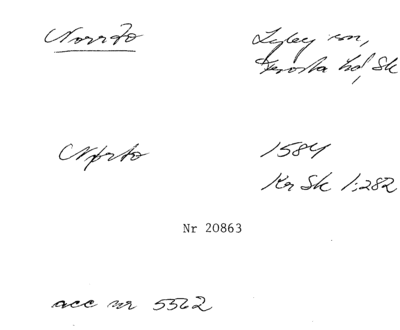 Norrto
Lyby sn,
Frosta hd, Sk
Nørto
1584
Kr Sk 1:282
Nr 20863
acc nr 5562